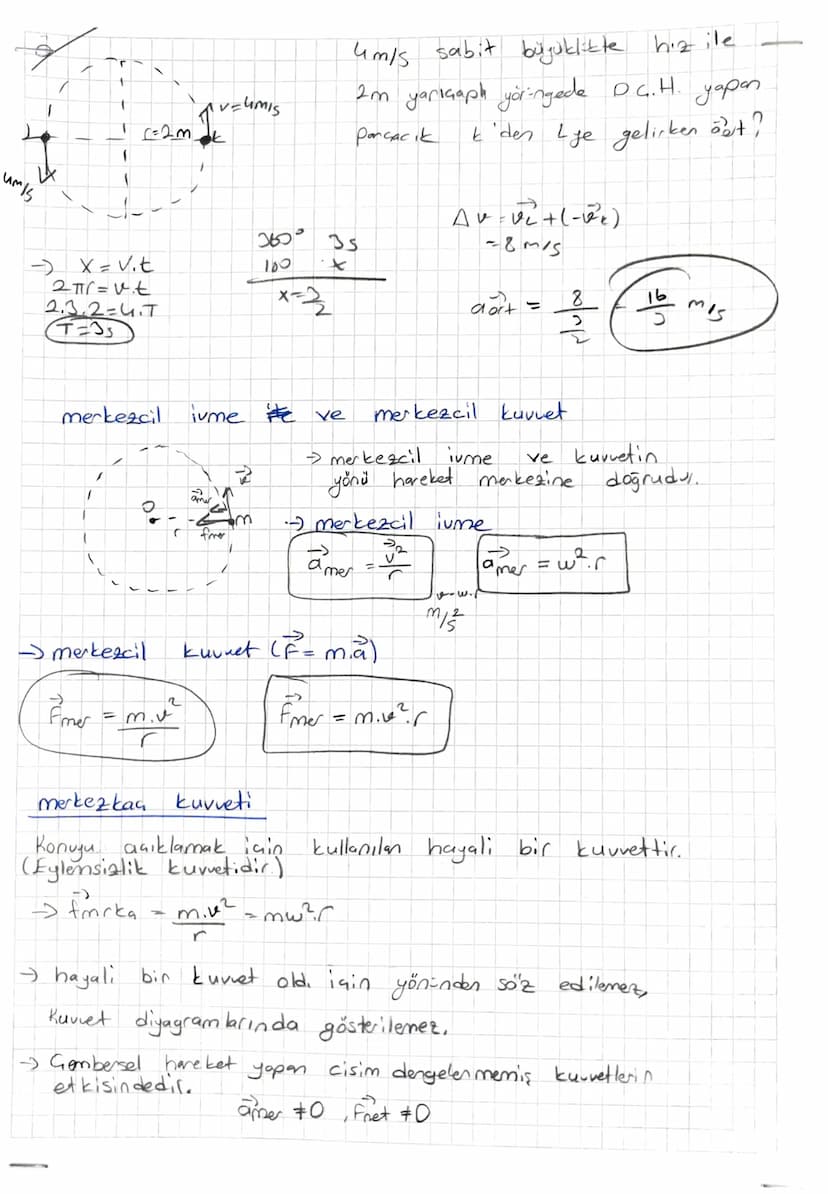 4m/s sabit büyüklükte hız ile
2m yarıçaplı yörüngede D.Ç.H. yapan
parçacık K'den L'ye gelirken aort?
V=4m/s
L r=2m K
4m/s
→ X=V.t
2πr=v.t
2.3.2=4.T
T=3s
360° 3s
180 x
x=3/2
Δv=v⃗L+(-v⃗K)
=8 m/s
a⃗ort = 8/(3/2) = 16/3 m/s
merkezcil ivme ve merkezcil kuvvet
v⃗
a⃗mer
O
r fmer m
→ merkezcil ivme ve kuvvetin
yönü hareket merkezine doğrudur.
→ merkezcil ivme
a⃗mer = v⃗²/r
a⃗mer = w².r
v=w.r
m/s²
→ merkezcil kuvvet (F⃗= m.a⃗)
F⃗mer = m.v²/r
F⃗mer = m.v².r
merkezkaç kuvveti
Konuyu açıklamak için kullanılan hayali bir kuvvettir.
(Eylemsizlik kuvvetidir.)
→ f⃗mrkç = m.v²/r = mw².r
→ hayali bir kuvvet old. için yönünden söz edilemez,
kuvvet diyagramlarında gösterilemez.
→ Çembersel hareket yapan cisim dengelenmemiş kuvvetlerin
etkisindedir.
a⃗mer ≠0 , F⃗net ≠0